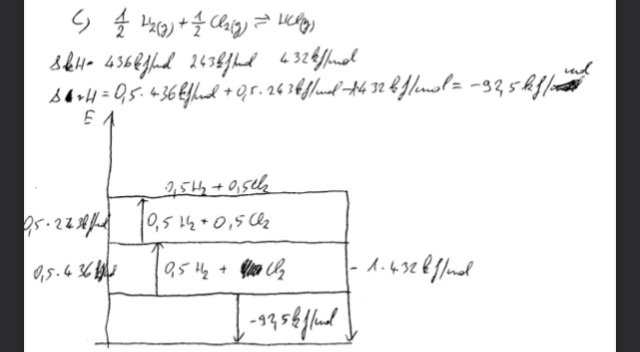 C) 1/2 H₂(g) + 1/2 Cl₂(g) ⇌ HCl(g)
436 kJ/mol 243 kJ/mol 432 kJ/mol
H = 0,5 · 436 kJ/mol + 0,5 · 243 kJ/mol - 1 · 432 kJ/mol = -92,5 kJ/mol
E
0,5 H₂ + 0,5 Cl₂
0,5 · 243 kJ/mol
0,5 H₂ + 0,5 Cl₂
0,5 · 436 kJ/mol
0,5 H₂ + Cl₂
- 1 · 432 kJ/mol
-92,5 kJ/mol